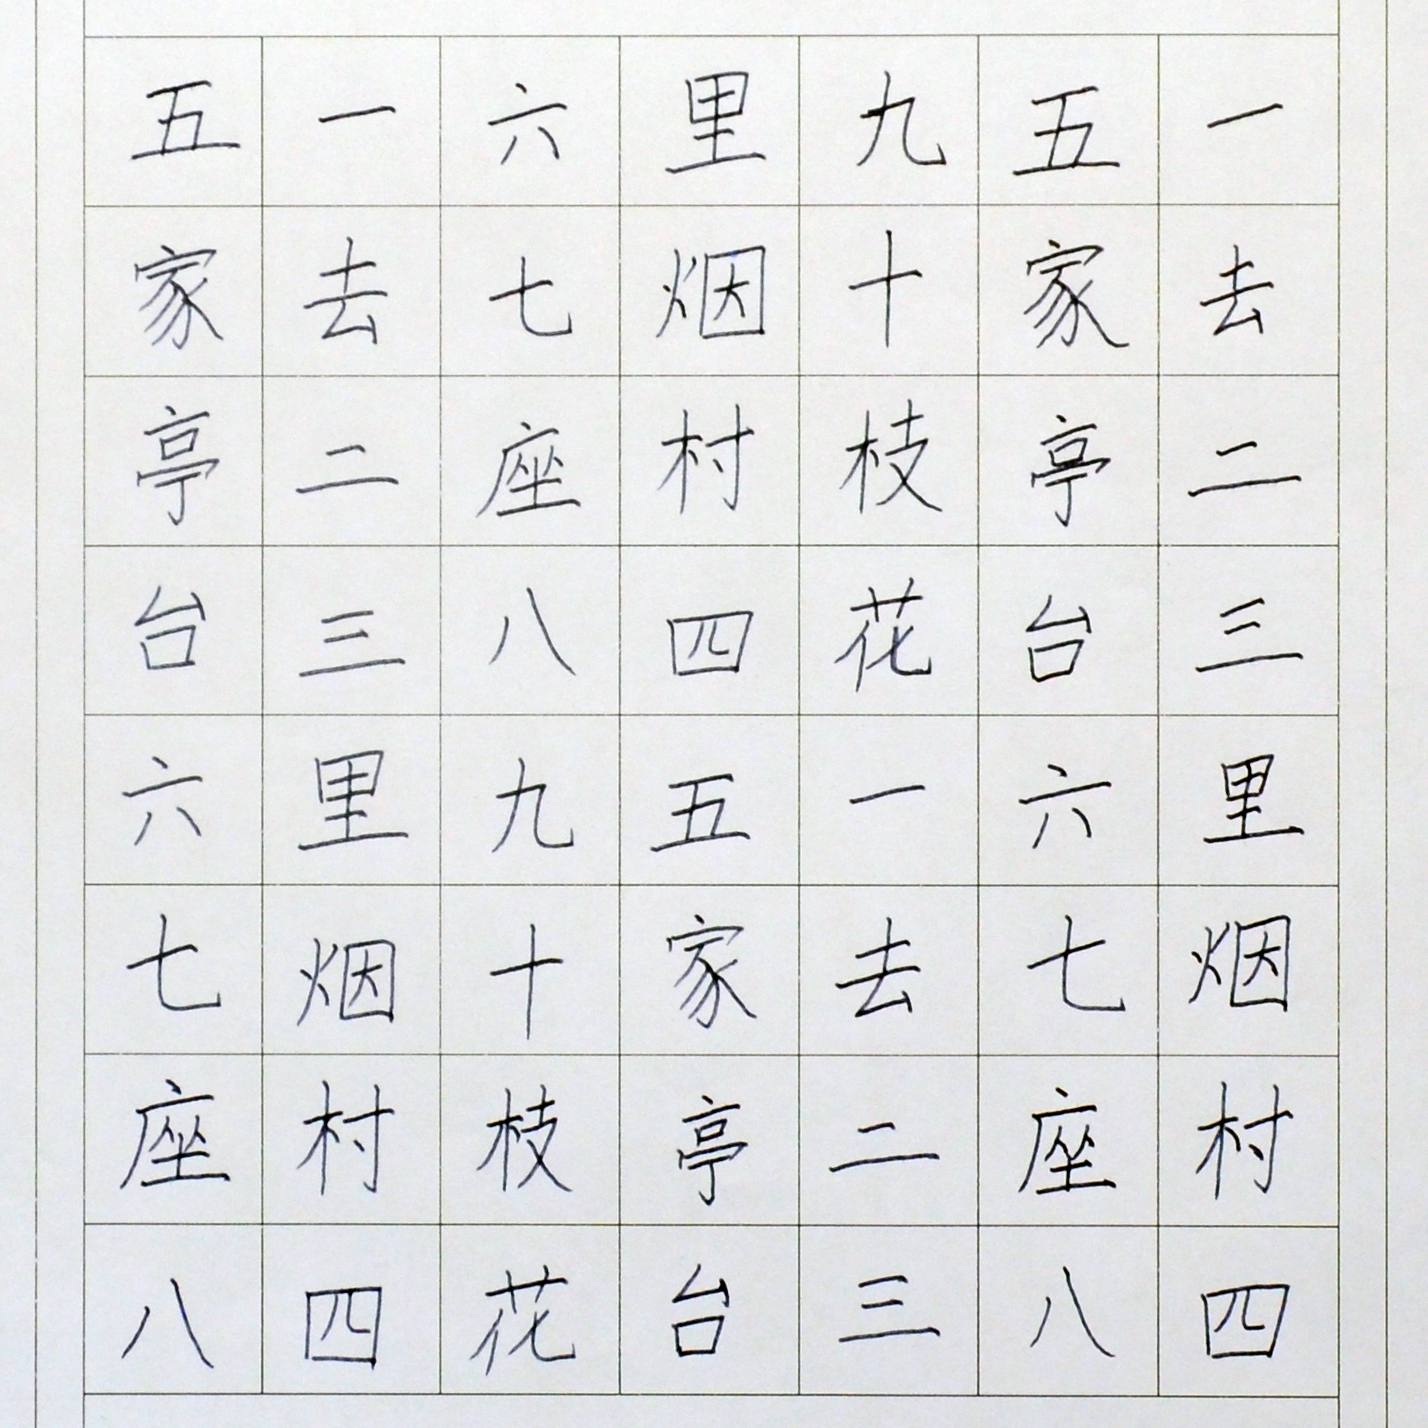 一去二三里烟村四
五家亭台六七座八
九十枝花一去二三
里烟村四五家亭台
六七座八九十枝花
一去二三里烟村四
五家亭台六七座八